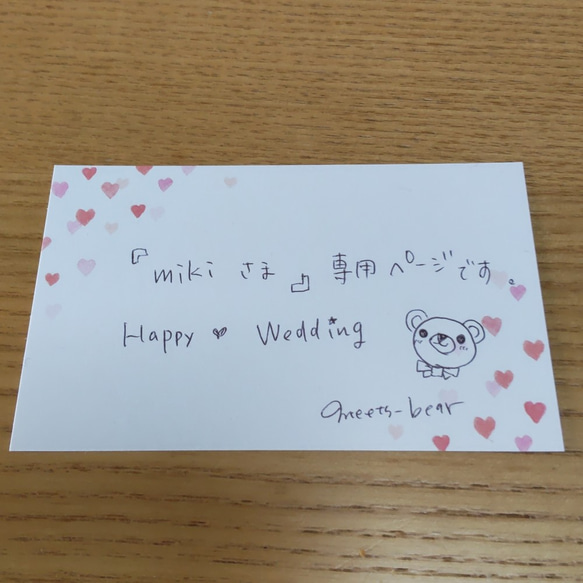 『miki さま』専用ページです。
Happy ♥ Wedding
meets-bear